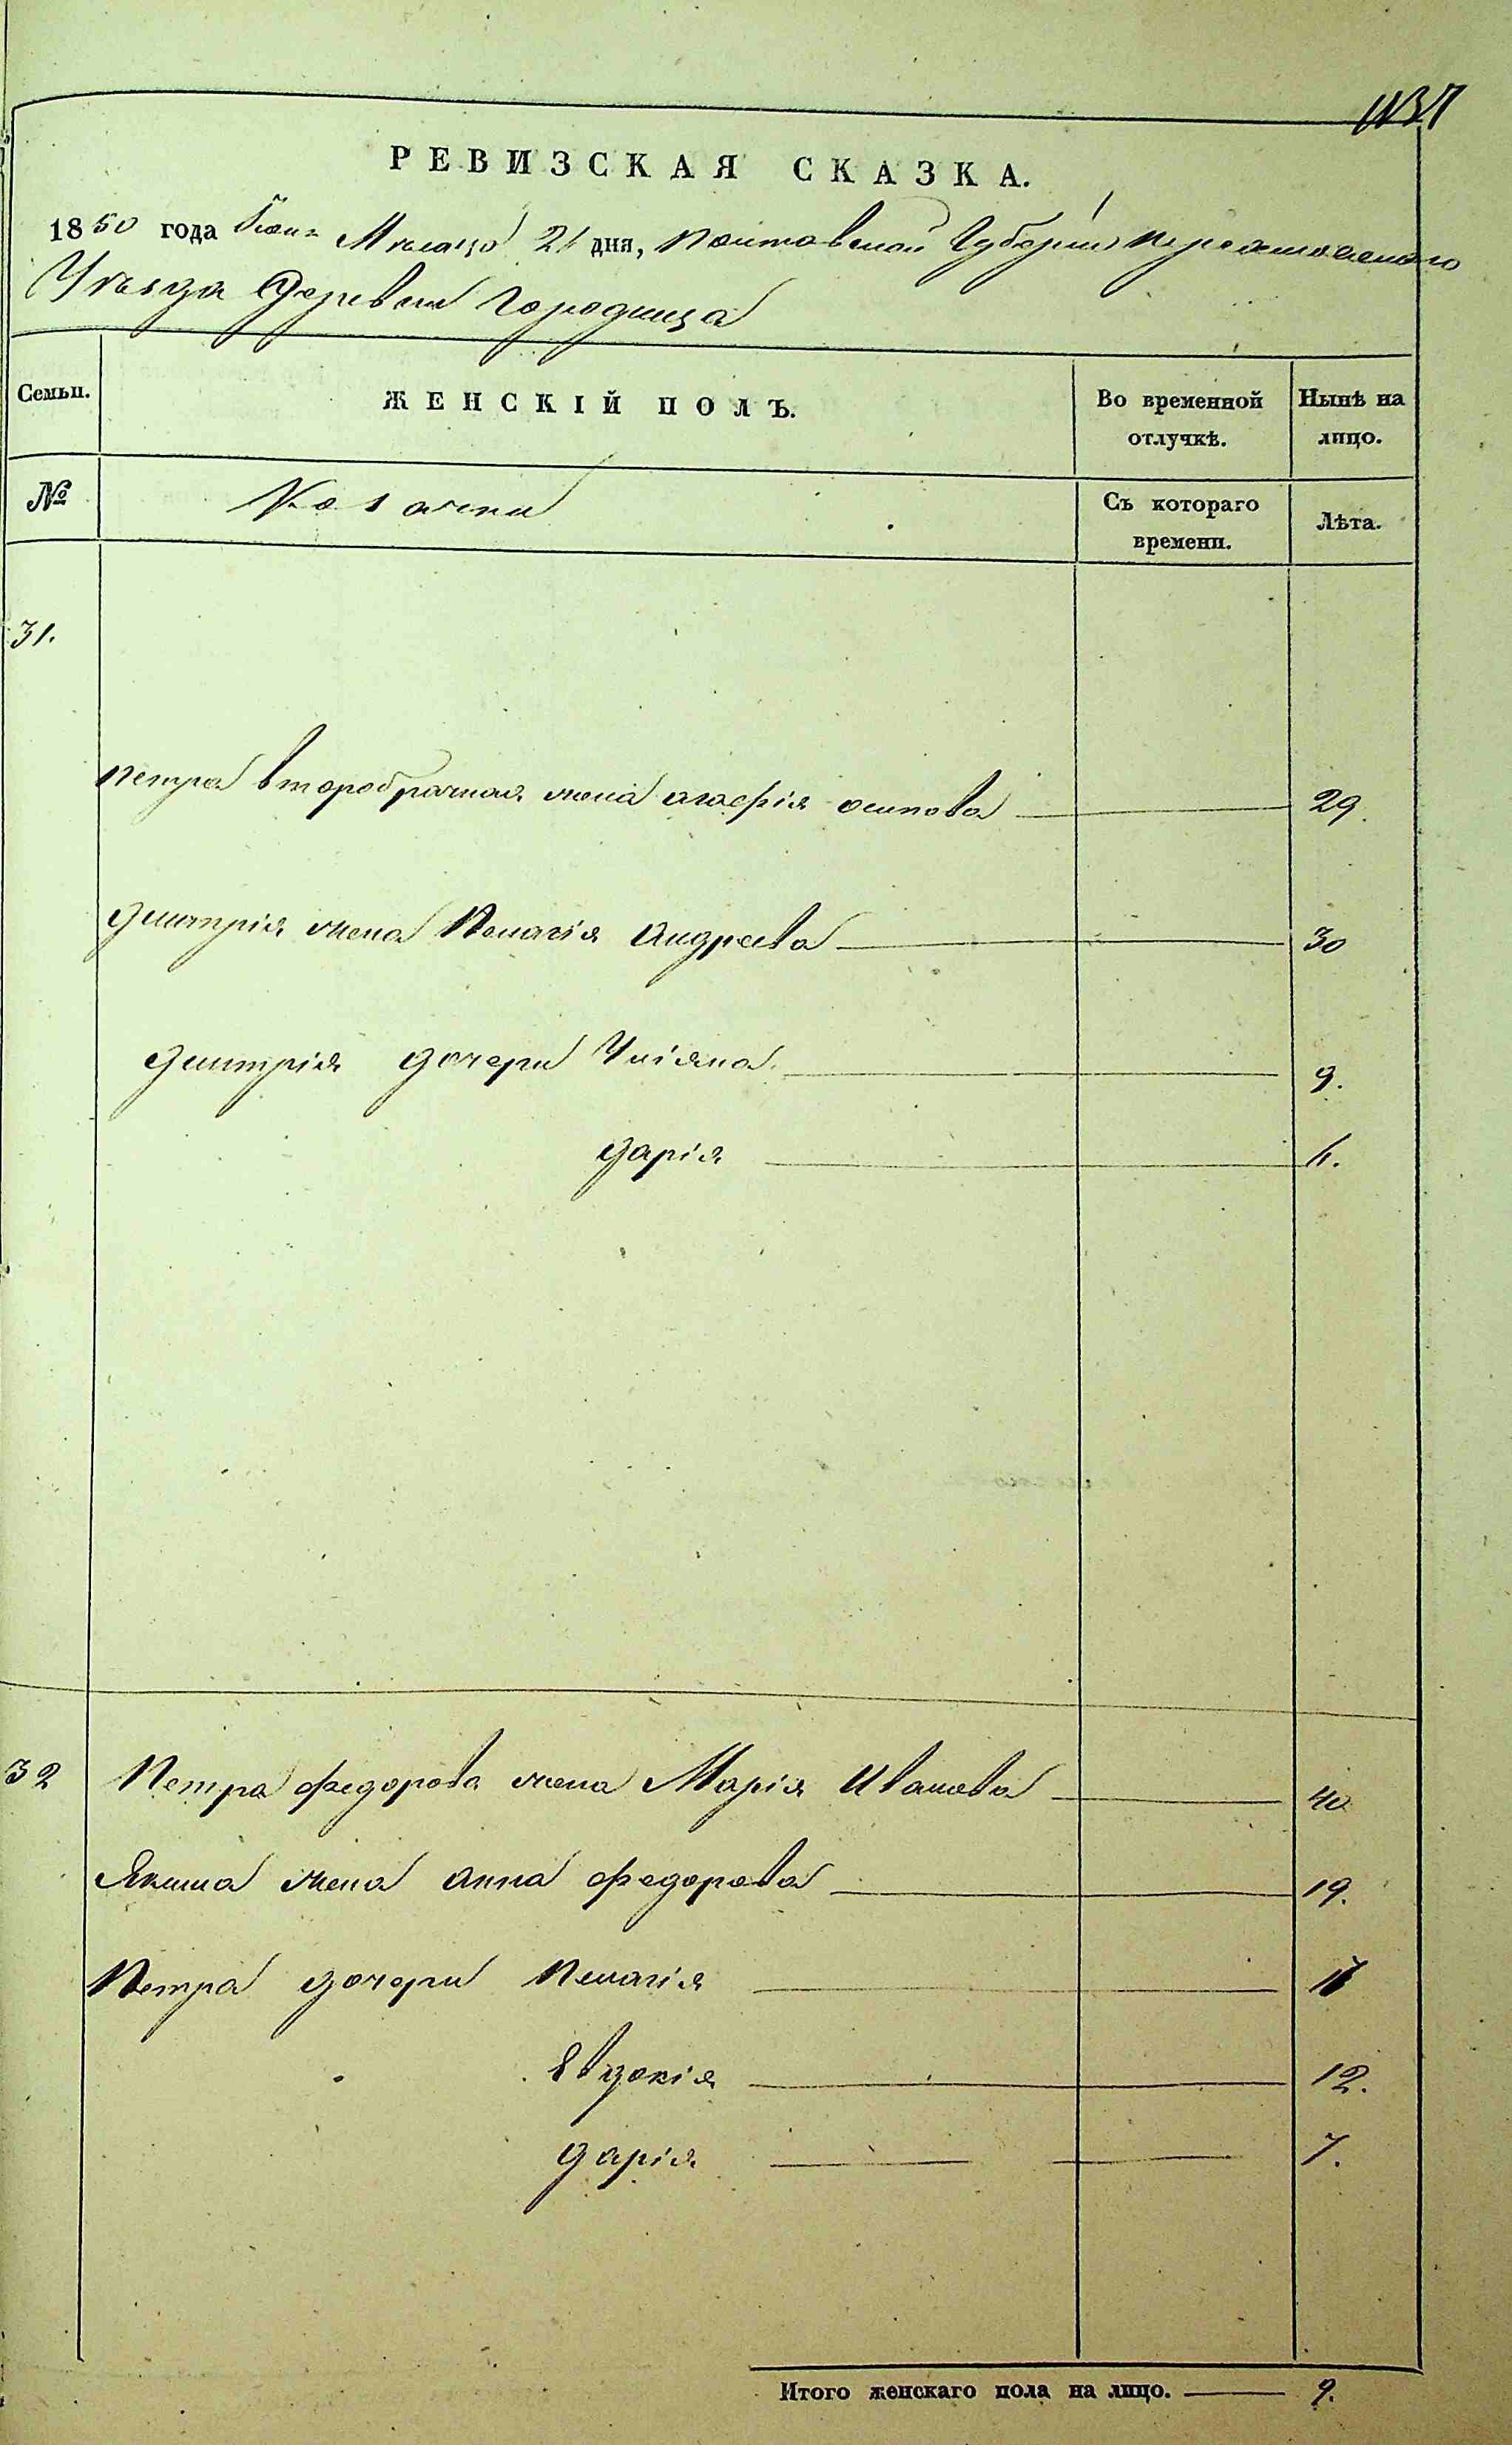 РЕВИЗСКАЯ СКАЗКА.
1850 года Іюня Мѣсяца 21 дня, Полтавской Губерніи Переяславскаго
Уѣзда Деревни Городища
Семьи.
ЖЕНСКІЙ ПОЛЪ.
Во временной отлучкѣ.
Ныпѣ на лицо.
№
Козачки
Съ котораго времени.
Лѣта.
31.
Петра второбрачная жена Агафія Осипова 29.
Дмитрія жена Пелагія Андреева 30
Дмитрія дочери Уліяна 9.
Дарія 6.
32 Петра Федорова жена Марія Иванова 40
Якима жена Анна Федорова 19.
Петра дочери Пелагія
Евдокія 12.
Дарія 7.
Итого женскаго пола на лицо. 9.